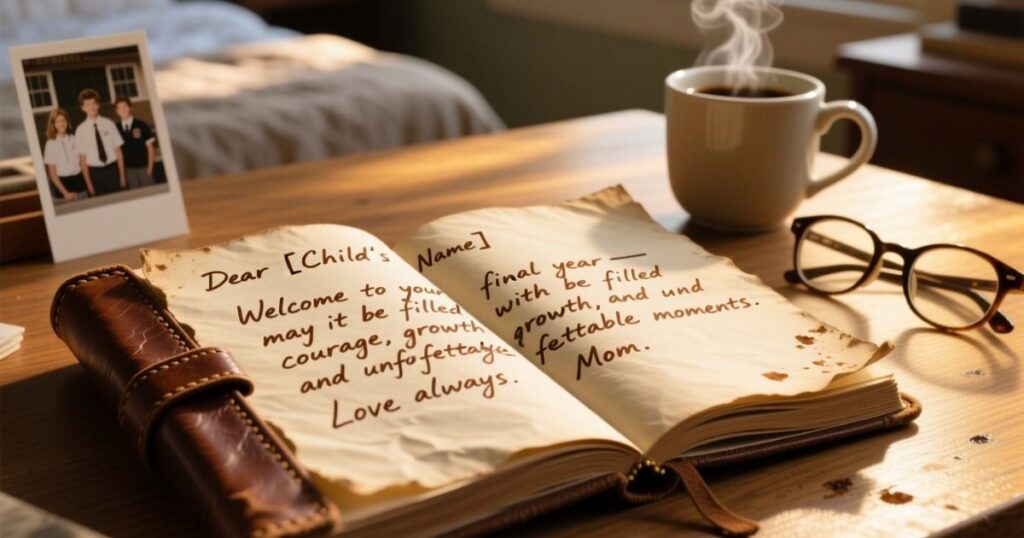 Dear [Child's
Welcome to your
may it be filled
courage, growth
and
Love always.
Name]
final year —
with be filled
growth, and und
fettable moments.
Mom.